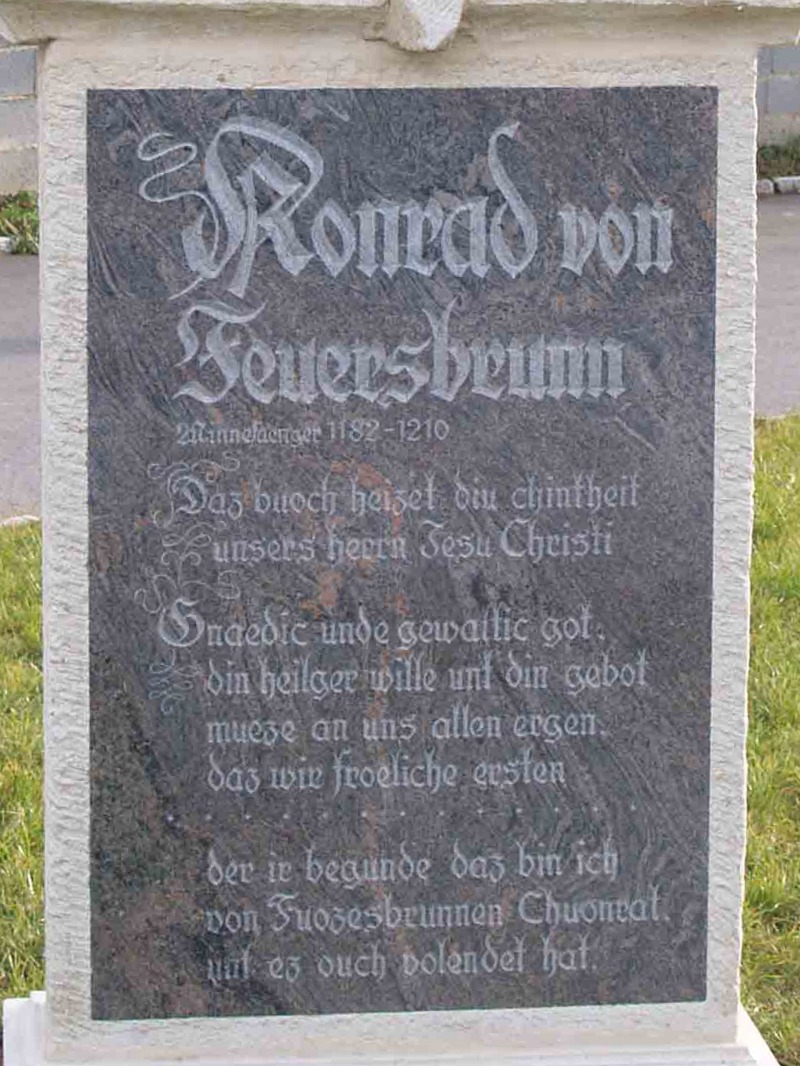 Konrad von
Feuersbrunn
Minnesaenger 1182-1210
Daz buoch heizet diu chintheit
unsers herrn Jesu Christi
Gnaedic unde gewaltic got.
din heilger wille unt din gebot
mueze an uns allen ergen.
daz wir froeliche ersten
. . . . . . . . . . . .
der ir begunde daz bin ich
von Fuozesbrunnen Chuonrat.
unt ez ouch volendet hat.